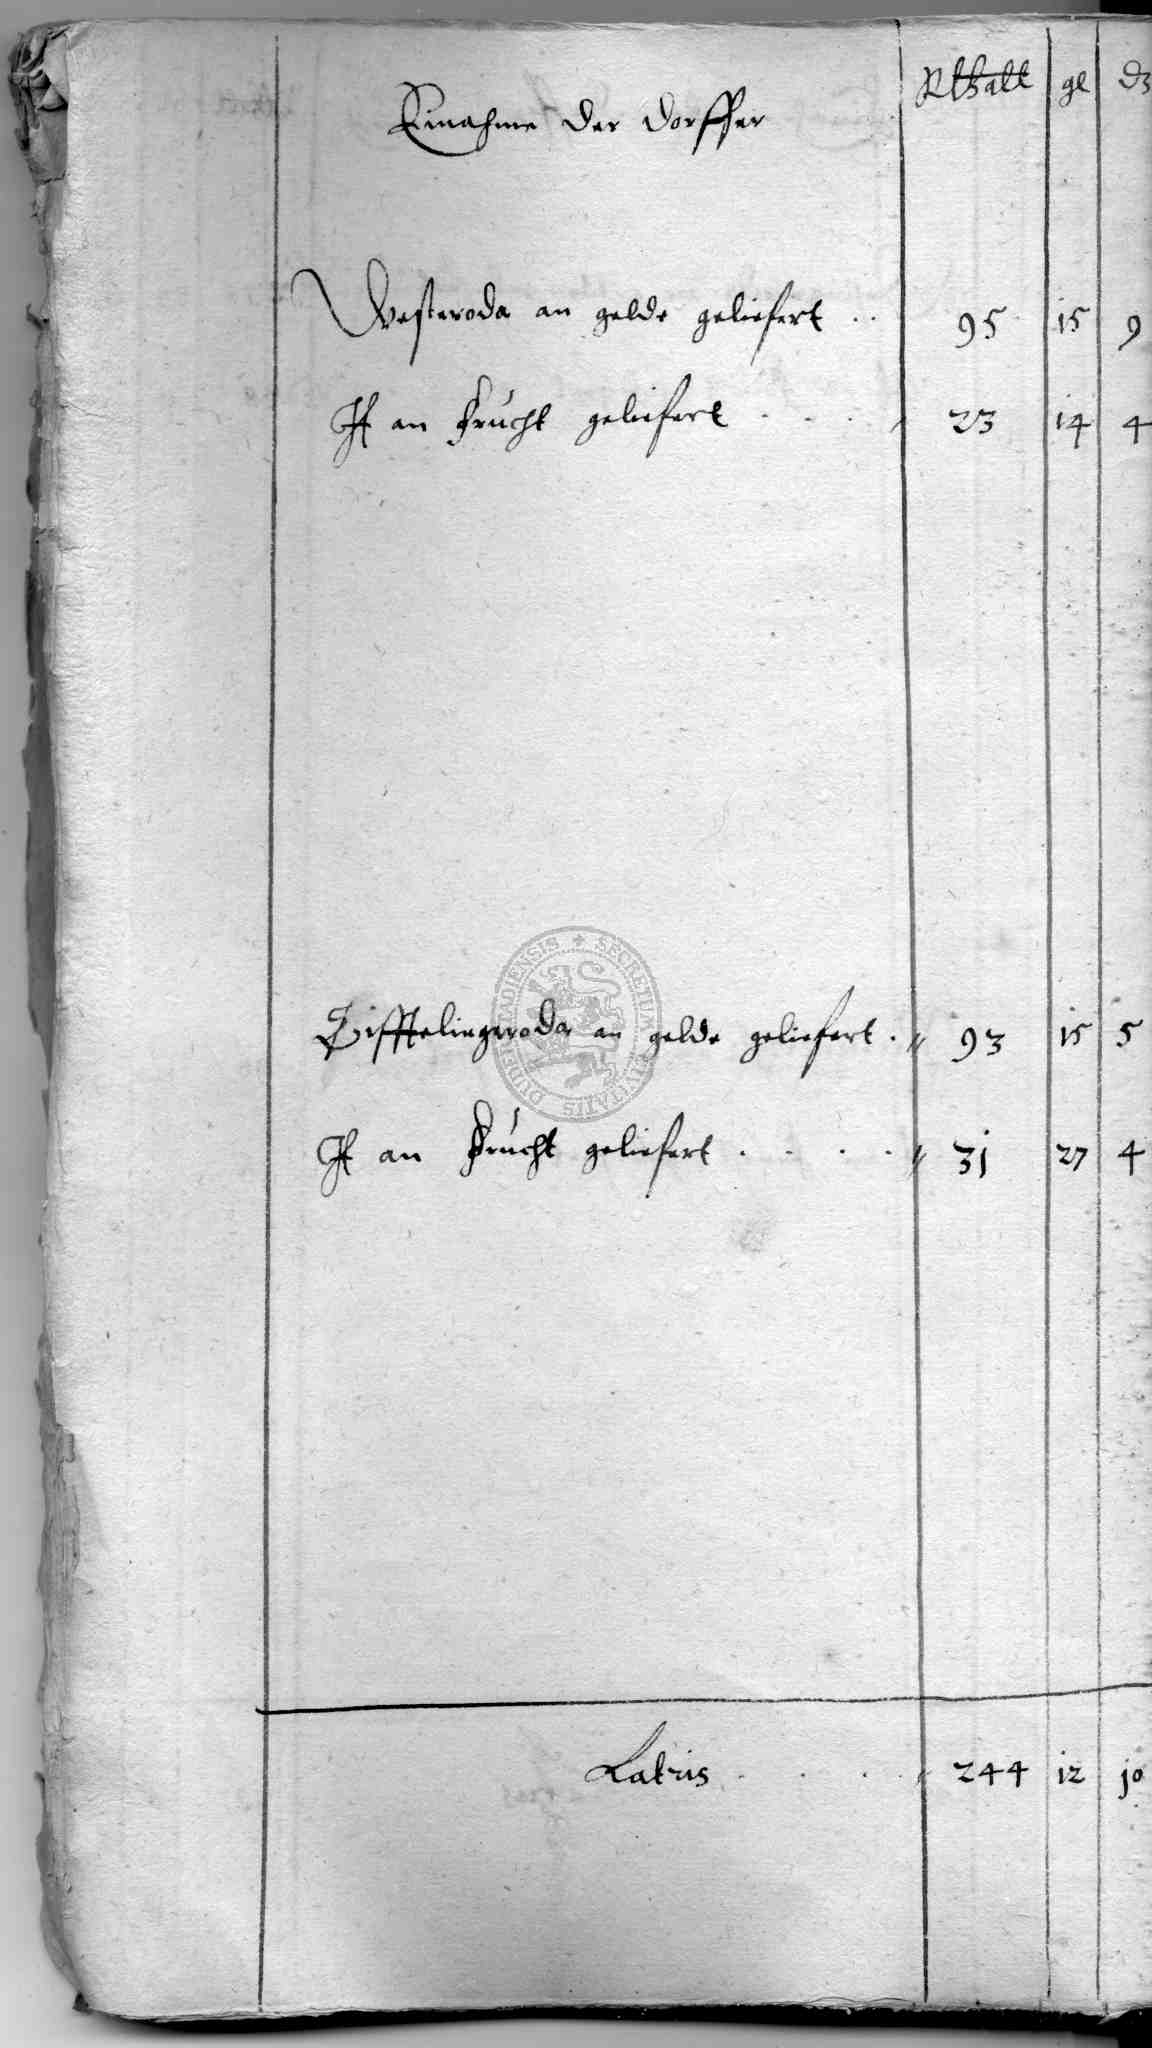 Rthall gl d3
Einahme der dorffer
Westeroda an gelde geliefert . . 95 15 9
It an frucht geliefert . . . . 23 14 4
DUDERSTADIENSIS + SECRETUM CIVITATIS
Tifftelingeroda an gelde geliefert . 93 15 5
It an frucht geliefert . . . . 31 27 4
Latris . . . . 244 12 10